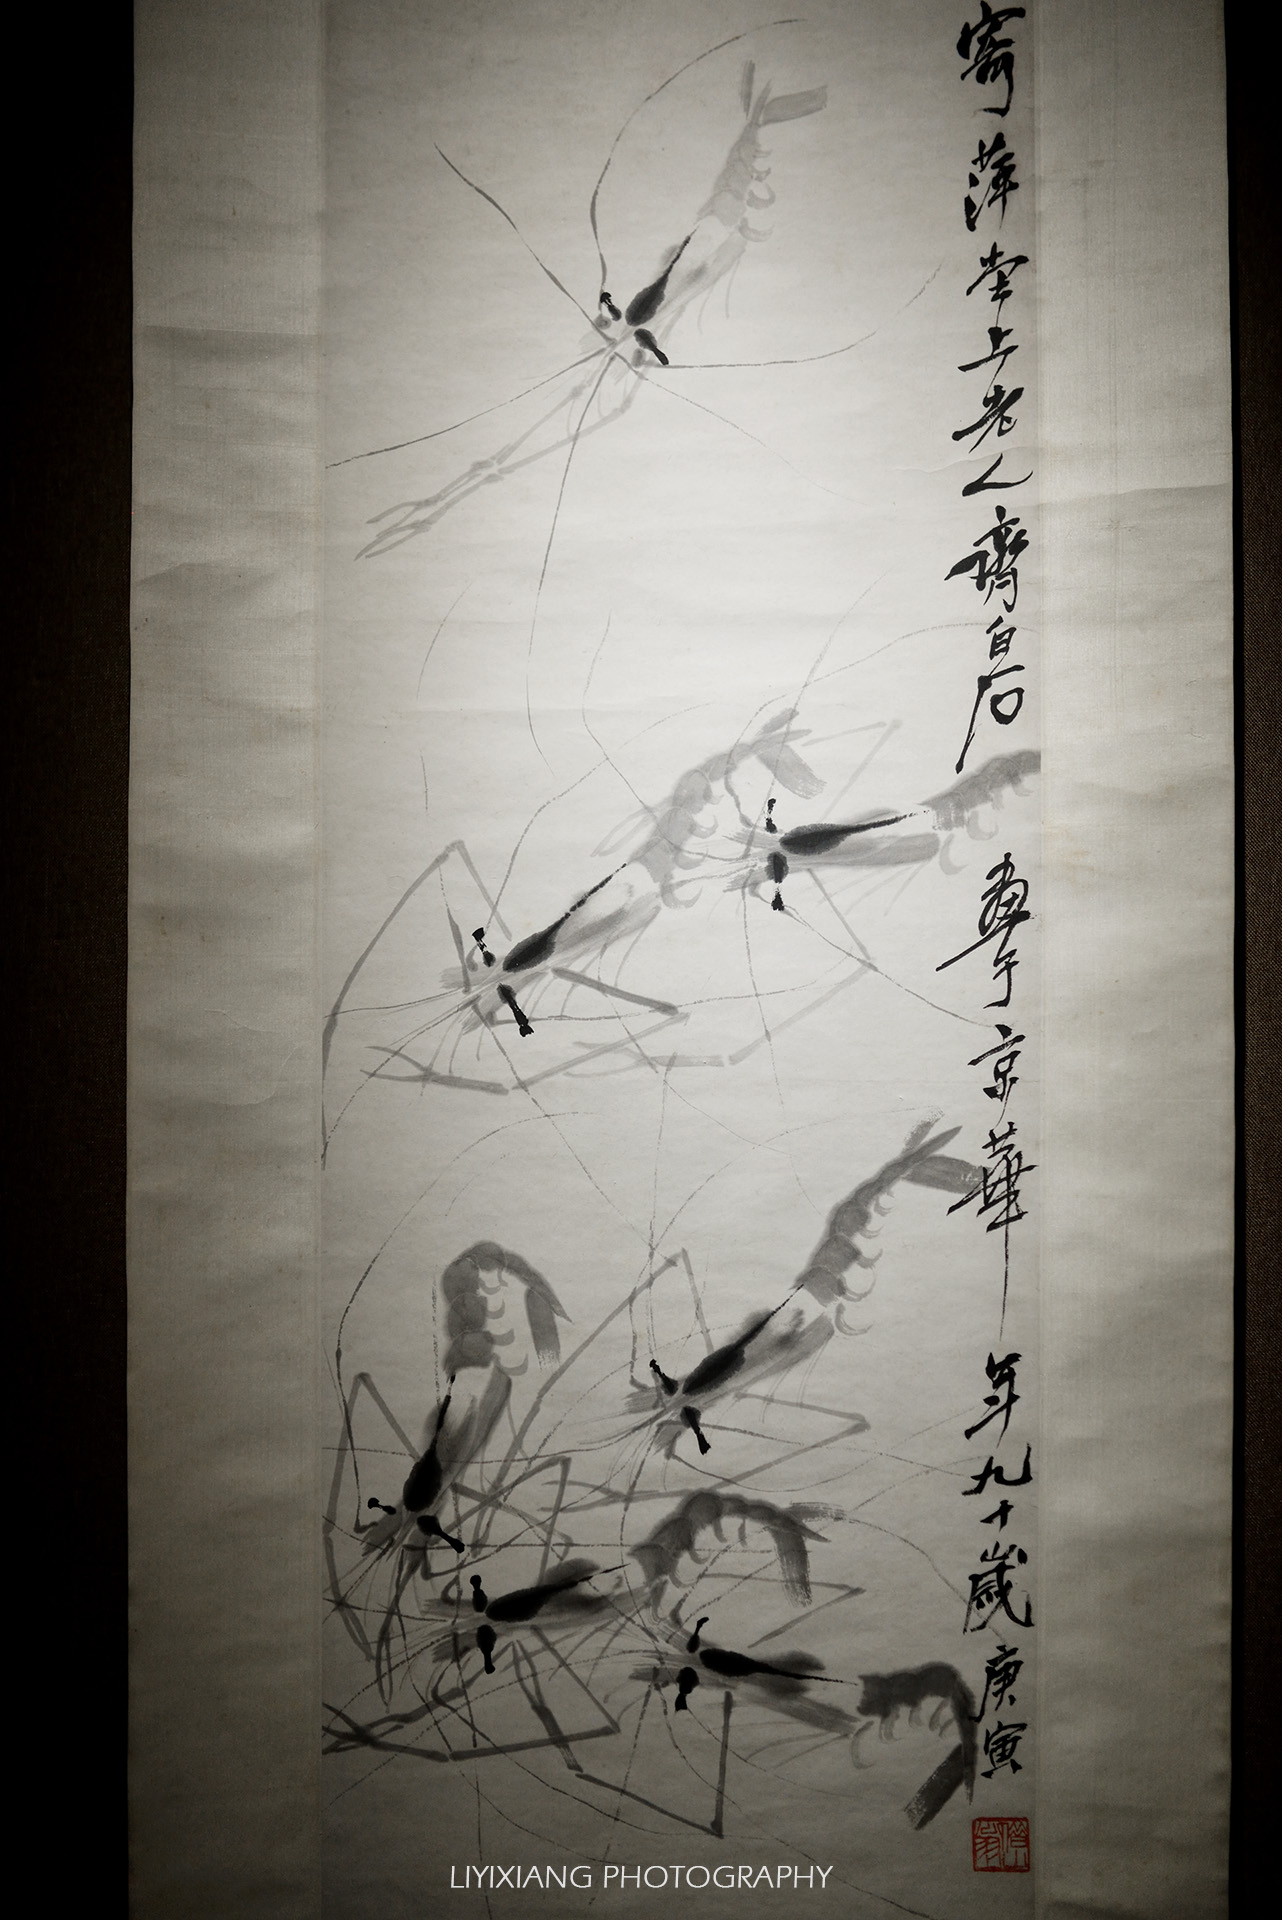 寄萍堂上老人齊白石畫于京華年九十歲庚寅
LIYIXIANG PHOTOGRAPHY